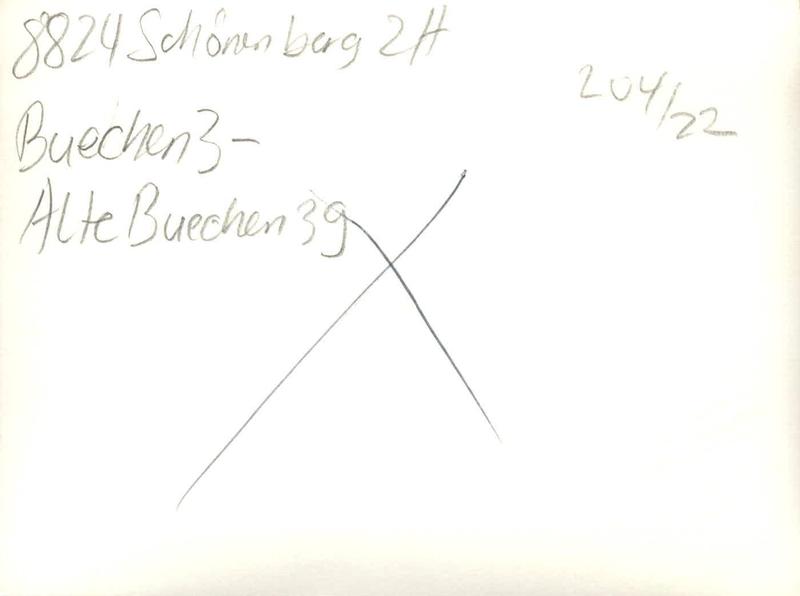 8824 Schönenberg ZH
204/22
Buechen 3-
Alte Buechen 39